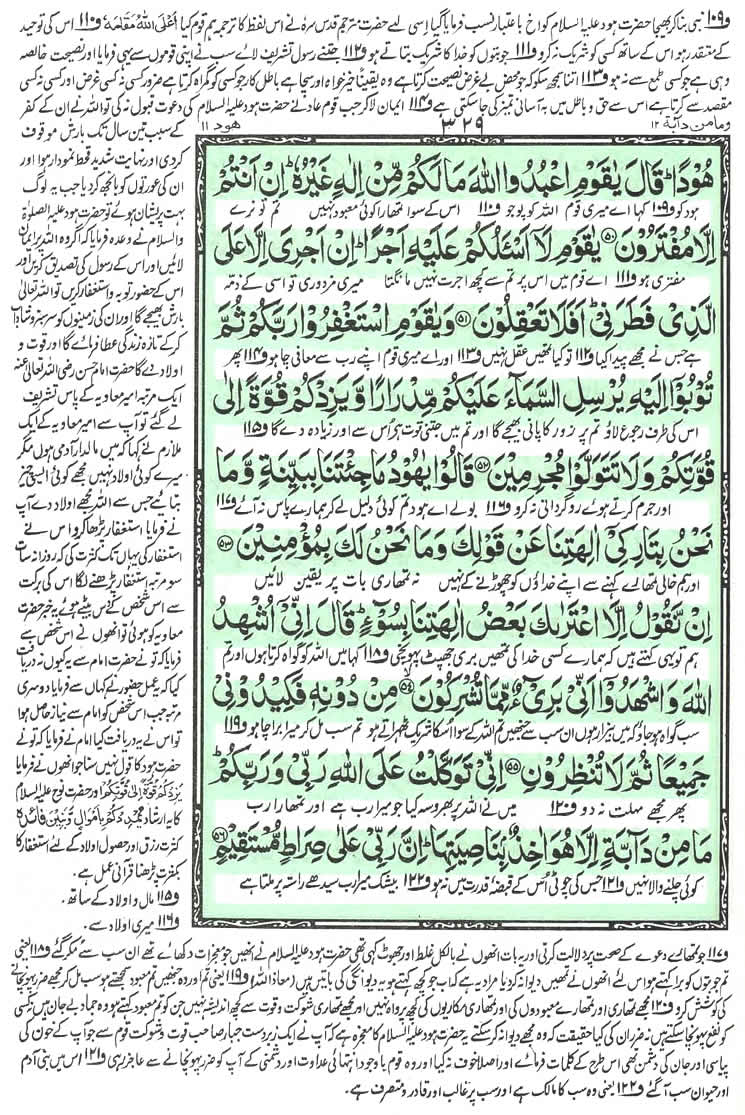 و۱۰۹ نبی بنا کر بھیجا حضرت ہود علیہ السلام کو اخ باعتبار نسب فرمایا گیا اسی لیے حضرت مترجم قدس سرہ نے اس لفظ کا ترجمہ ہم قوم کیا اَعْلَى اللهُ مَقَامَهٗ و۱۱۰ اس کی توحید
کے معتقد رہو اس کے ساتھ کسی کو شریک نہ کرو و۱۱۱ جو بتوں کو خدا کا شریک بتاتے ہو و۱۱۲ جتنے رسول تشریف لائے سب نے اپنی قوموں سے یہی فرمایا اور نصیحت خالصہ
وہی ہے جو کسی طمع سے نہ ہو و۱۱۳ اتنا سمجھ سکو کہ جو محض بے غرض نصیحت کرتا ہے وہ یقیناً خیر خواہ اور سچا ہے باطل کار جو کسی کو گمراہ کرتا ہے ضرور کسی نہ کسی غرض اور کسی نہ کسی
مقصد سے کرتا ہے اس سے حق و باطل میں بہ آسانی تمیز کی جا سکتی ہے و۱۱۴ ایمان لا کر جب قوم عاد نے حضرت ہود علیہ السلام کی دعوت قبول نہ کی تو اللہ نے ان کے کفر
ومامن دآبة ۱۲
۳۲۹
هود ۱۱
کے سبب تین سال تک بارش موقوف
کردی اور نہایت شدید قحط نمودار ہوا اور
ان کی عورتوں کو بانجھ کردیا جب یہ لوگ
بہت پریشان ہوئے تو حضرت ہود علیہ الصلوٰۃ
والسلام نے وعدہ فرمایا کہ اگر وہ اللہ پر ایمان
لائیں اور اس کے رسول کی تصدیق کریں اور
اس کے حضور توبہ و استغفار کریں تو اللہ تعالیٰ
بارش بھیجے گا اور ان کی زمینوں کو سرسبز و شاداب
کرکے تازہ زندگی عطا فرمائے گا اور قوت و
اولاد دے گا حضرت امام حسن رضی اللہ تعالیٰ عنہ
ایک مرتبہ امیر معاویہ کے پاس تشریف
لے گئے تو آپ سے امیر معاویہ کے ایک
ملازم نے کہا کہ میں مالدار آدمی ہوں مگر
میرے کوئی اولاد نہیں مجھے کوئی ایسی چیز
بتائیے جس سے اللہ مجھے اولاد دے آپ
نے فرمایا استغفار پڑھا کرو اس نے
استغفار کی یہاں تک کثرت کی کہ روزانہ سات
سو مرتبہ استغفار پڑھنے لگا اس کی برکت
سے اس شخص کے دس بیٹے ہوئے یہ خبر حضرت
معاویہ کو ہوئی تو انھوں نے اس شخص سے
فرمایا کہ تو نے حضرت امام سے یہ کیوں نہ دریافت
کیا کہ یہ عمل حضور نے کہاں سے فرمایا دوسری
مرتبہ جب اس شخص کو امام سے نیاز حاصل ہوا
تو اس نے یہ دریافت کیا امام نے فرمایا کہ تو نے
حضرت ہود کا قول نہیں سنا جو انھوں نے فرمایا
يَزِدْكُمْ قُوَّةً اِلٰى قُوَّتِكُمْ اور حضرت نوح علیہ السلام
کا یہ ارشاد يُمْدِدْكُمْ بِاَمْوَالٍ وَّبَنِيْنَ فائدہ
کثرت رزق اور حصول اولاد کے لئے استغفار کا
بکثرت پڑھنا قرآنی عمل ہے۔
و۱۱۵ مال و اولاد کے ساتھ۔
و۱۱۶ میری اولاد سے۔
هُوْدًا ؕ قَالَ يٰقَوْمِ اعْبُدُوا اللّٰهَ مَا لَكُمْ مِّنْ اِلٰهٍ غَيْرُهٗ ؕ اِنْ اَنْتُمْ
ہود کو و۱۰۹ کہا اے میری قوم اللہ کو پوجو و۱۱۰ اس کے سوا تمہارا کوئی معبود نہیں تم تو نرے
اِلَّا مُفْتَرُوْنَ ﴿۵۰﴾ يٰقَوْمِ لَاۤ اَسْـَٔلُكُمْ عَلَيْهِ اَجْرًا ؕ اِنْ اَجْرِيَ اِلَّا عَلَى
مفتری ہو و۱۱۱ اے قوم میں اس پر تم سے کچھ اجرت نہیں مانگتا میری مزدوری تو اسی کے ذمہ
الَّذِيْ فَطَرَنِيْ ؕ اَفَلَا تَعْقِلُوْنَ ﴿۵۱﴾ وَيٰقَوْمِ اسْتَغْفِرُوْا رَبَّكُمْ ثُمَّ
ہے جس نے مجھے پیدا کیا و۱۱۲ تو کیا تمھیں عقل نہیں و۱۱۳ اور اے میری قوم اپنے رب سے معافی چاہو و۱۱۴ پھر
تُوْبُوْۤا اِلَيْهِ يُرْسِلِ السَّمَآءَ عَلَيْكُمْ مِّدْرَارًا وَّيَزِدْكُمْ قُوَّةً اِلٰى
اس کی طرف رجوع لاؤ تم پر زور کا پانی بھیجے گا اور تم میں جتنی قوت ہے اس سے اور زیادہ دے گا و۱۱۵
قُوَّتِكُمْ وَلَا تَتَوَلَّوْا مُجْرِمِيْنَ ﴿۵۲﴾ قَالُوْا يٰهُوْدُ مَا جِئْتَنَا بِبَيِّنَةٍ وَّمَا
اور جرم کرتے ہوئے روگردانی نہ کرو و۱۱۶ بولے اے ہود تم کوئی دلیل لے کر ہمارے پاس نہ آئے و۱۱۷
نَحْنُ بِتَارِكِيْۤ اٰلِهَتِنَا عَنْ قَوْلِكَ وَمَا نَحْنُ لَكَ بِمُؤْمِنِيْنَ ﴿۵۳﴾
اور ہم خالی تمہارے کہنے سے اپنے خداؤں کو چھوڑنے کے نہیں نہ تمہاری بات پر یقین لائیں
اِنْ نَّقُوْلُ اِلَّا اعْتَرٰىكَ بَعْضُ اٰلِهَتِنَا بِسُوْٓءٍ ؕ قَالَ اِنِّيْۤ اُشْهِدُ
ہم تو یہی کہتے ہیں کہ ہمارے کسی خدا کی تمھیں بری جھپٹ پہونچی و۱۱۸ کہا میں اللہ کو گواہ کرتا ہوں اور تم
اللّٰهَ وَاشْهَدُوْۤا اَنِّيْ بَرِيْٓءٌ مِّمَّا تُشْرِكُوْنَ ﴿۵۴﴾ مِنْ دُوْنِهٖ فَكِيْدُوْنِيْ
سب گواہ ہوجاؤ کہ میں بیزار ہوں ان سب سے جنھیں تم اللہ کے سوا اس کا شریک ٹھہراتے ہو تم سب مل کر میرا برا چاہو و۱۱۹
جَمِيْعًا ثُمَّ لَا تُنْظِرُوْنِ ﴿۵۵﴾ اِنِّيْ تَوَكَّلْتُ عَلَى اللّٰهِ رَبِّيْ وَرَبِّكُمْ ؕ
پھر مجھے مہلت نہ دو و۱۲۰ میں نے اللہ پر بھروسہ کیا جو میرا رب ہے اور تمہارا رب
مَا مِنْ دَآبَّةٍ اِلَّا هُوَ اٰخِذٌۢ بِنَاصِيَتِهَا ؕ اِنَّ رَبِّيْ عَلٰى صِرَاطٍ مُّسْتَقِيْمٍ ﴿۵۶﴾
کوئی چلنے والا نہیں و۱۲۱ جس کی چوٹی اس کے قبضۂ قدرت میں نہ ہو و۱۲۲ بیشک میرا رب سیدھے راستہ پر ملتا ہے
و۱۱۷ جو تمہارے دعوے کی صحت پر دلالت کرتی اور یہ بات انھوں نے بالکل غلط اور جھوٹ کہی تھی حضرت ہود علیہ السلام نے انھیں جو معجزات دکھائے تھے ان سب سے مکر گئے و۱۱۸ یعنی
تم جو بتوں کو برا کہتے ہو اس لئے انھوں نے تمھیں دیوانہ کردیا مراد یہ ہے کہ اب جو کچھ کہتے ہو یہ دیوانگی کی باتیں ہیں (معاذ اللہ) و۱۱۹ یعنی تم اور وہ جنھیں تم معبود سمجھتے ہو سب مل کر مجھے ضرر پہونچانے
کی کوشش کرو و۱۲۰ مجھے تمہاری اور تمہارے معبودوں کی اور تمہاری مکاریوں کی کچھ پروا نہیں اور مجھے تمہاری شوکت و قوت سے کچھ اندیشہ نہیں جن کو تم معبود کہتے ہو وہ جماد بے جان ہیں نہ کسی
کو نفع پہونچا سکتے ہیں نہ ضرر ان کی کیا حقیقت کہ وہ مجھے دیوانہ کرسکتے یہ حضرت ہود علیہ السلام کا معجزہ ہے کہ آپ نے ایک زبردست جبار صاحب قوت و شوکت قوم سے جو آپ کے خون کی
پیاسی اور جان کی دشمن تھی اس طرح کے کلمات فرمائے اور اصلا خوف نہ کیا اور وہ قوم باوجود انتہائی عداوت اور دشمنی کے آپ کو ضرر پہونچانے سے عاجز رہی و۱۲۱ اسی میں بنی آدم
اور حیوان سب آ گئے و۱۲۲ یعنی وہ سب کا مالک ہے اور سب پر غالب اور قادر و متصرف ہے۔